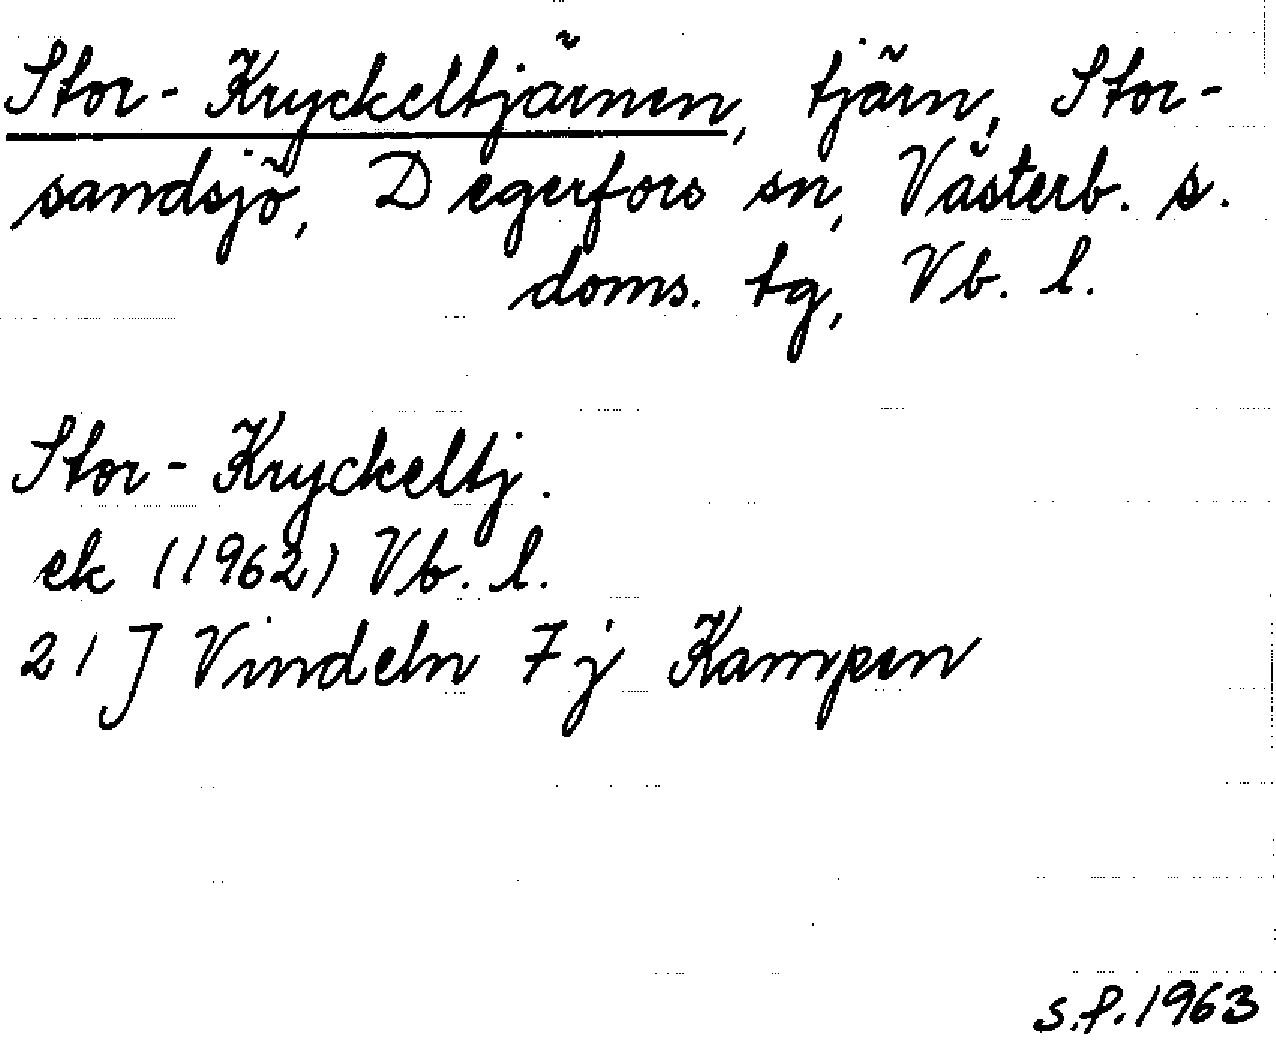 Stor-Kryckeltjärnen, tjärn, Stor-
sandsjö, Degerfors sn, Västerb. s.
doms. tg, Vb. l.
Stor-Kryckeltj.
ek (1962) Vb. l.
21 J Vindeln 7j Kampen
s.f. 1963